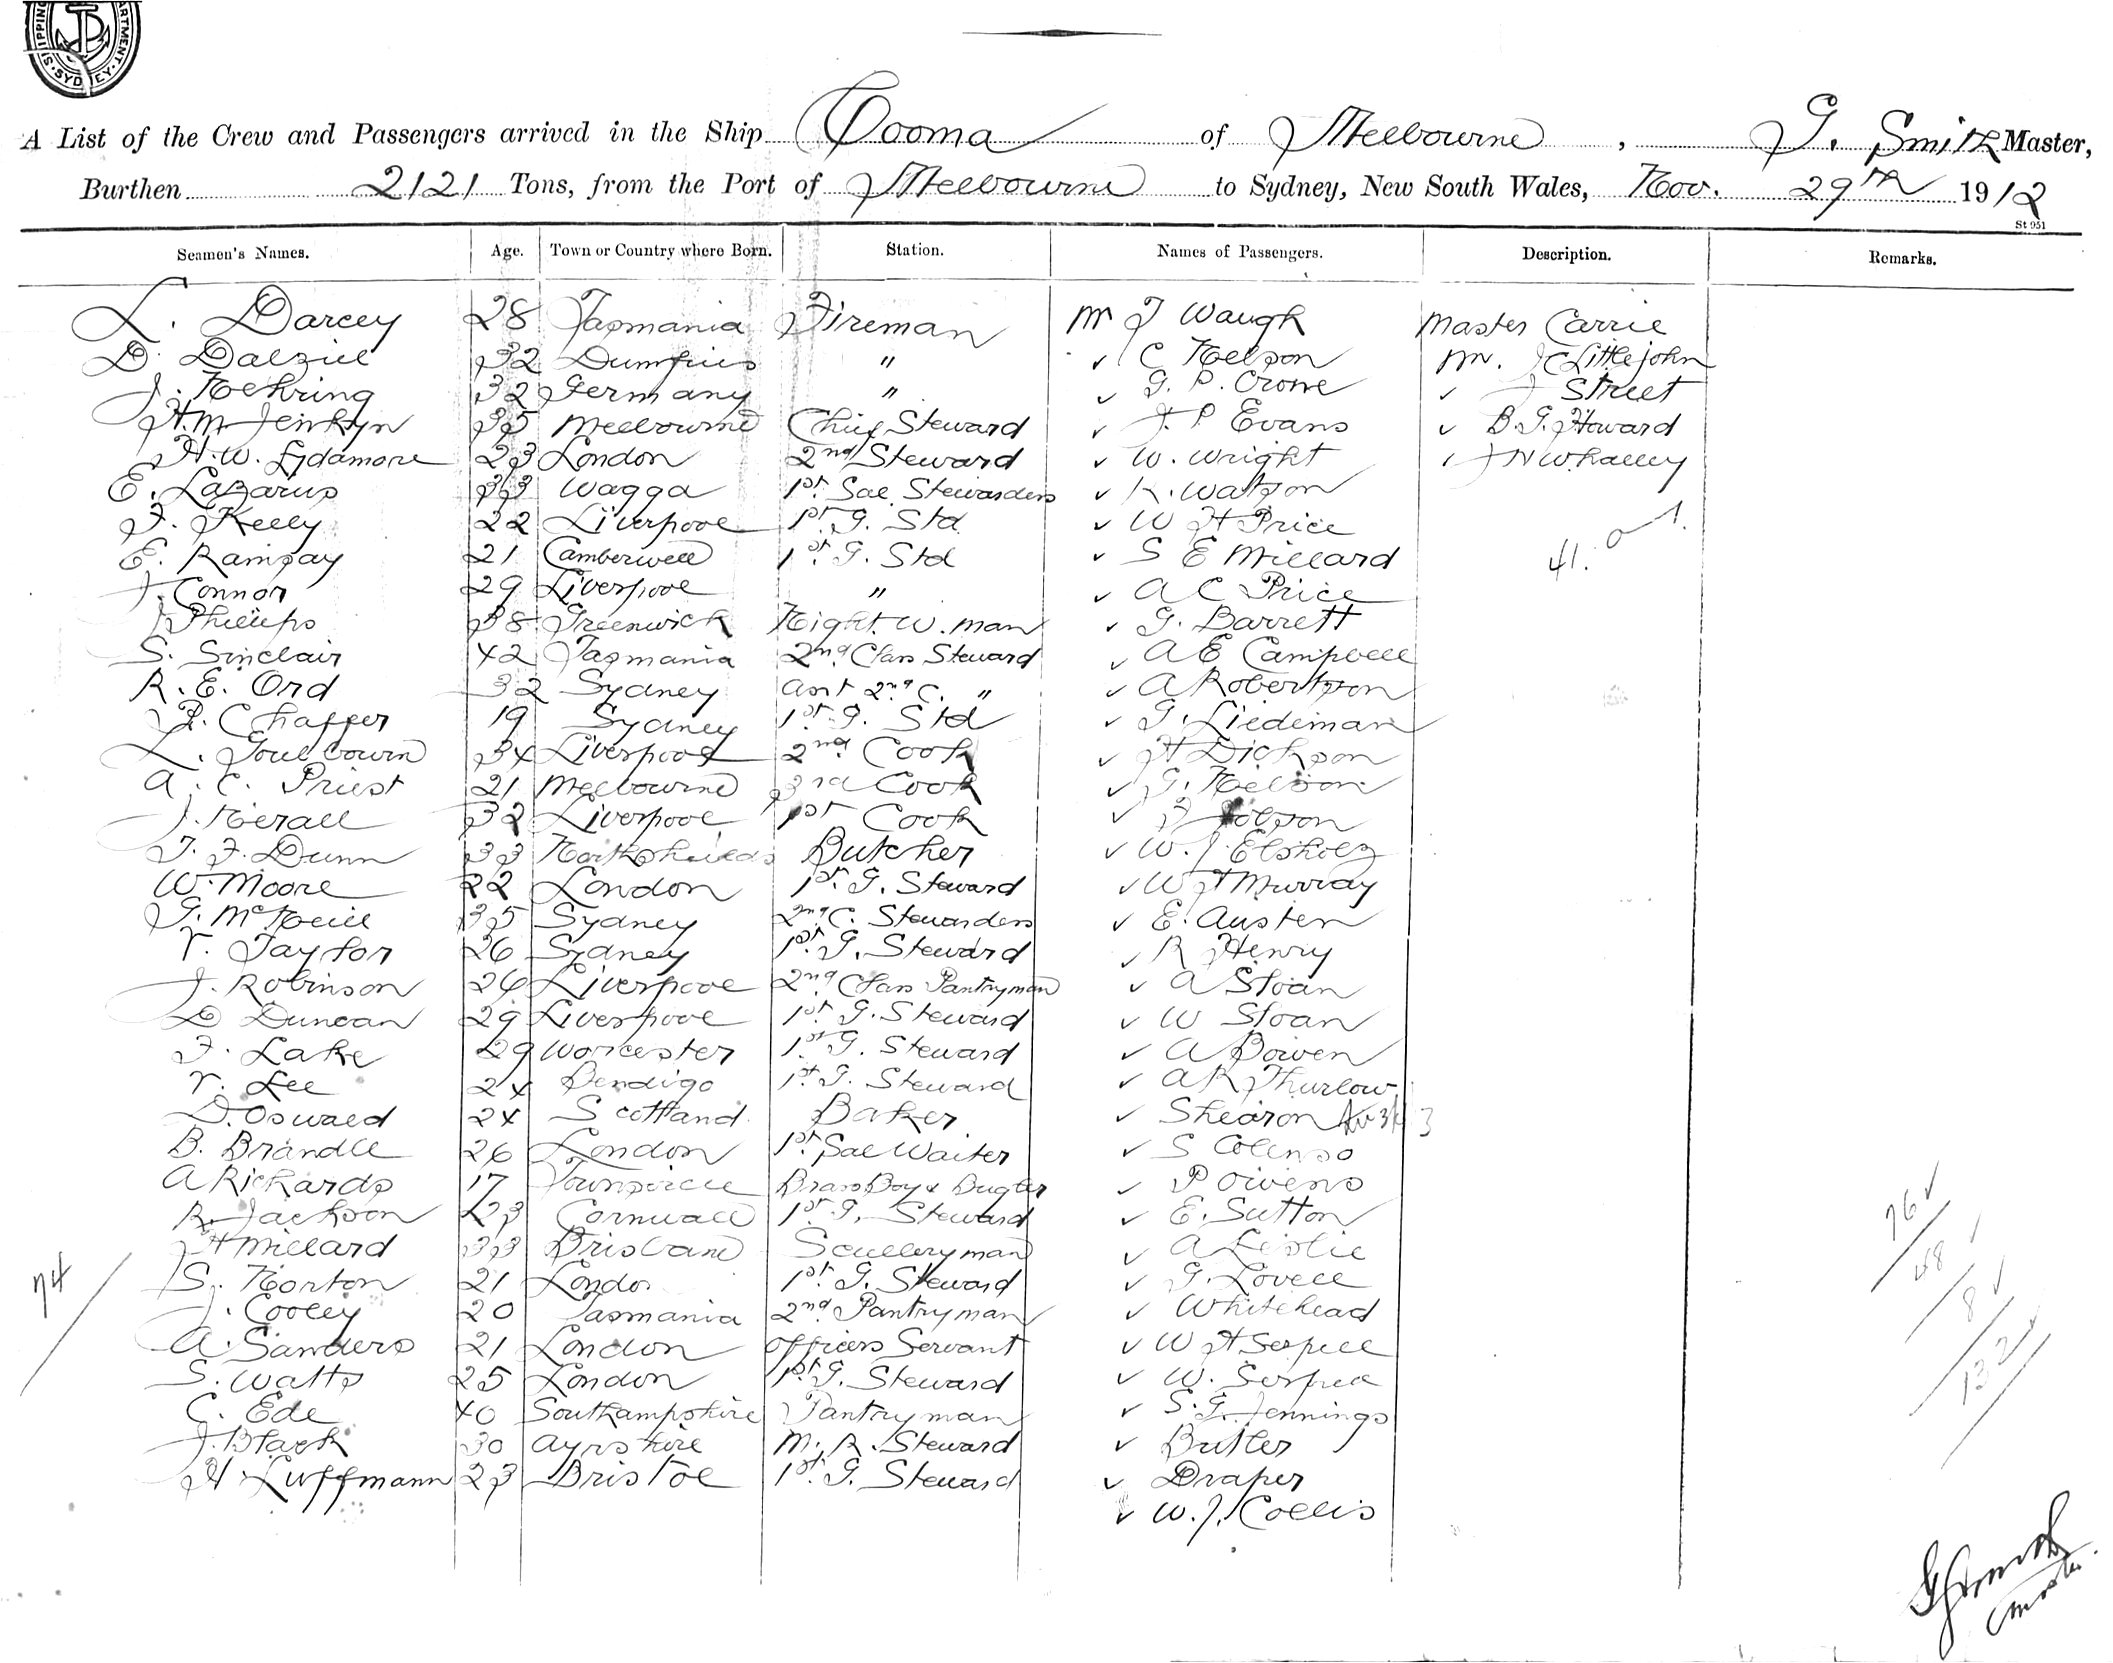 SHIPPING DEPARTMENT SYDNEY
A List of the Crew and Passengers arrived in the Ship Cooma of Melbourne, G. Smith Master,
Burthen 2121 Tons, from the Port of Melbourne to Sydney, New South Wales, Nov. 29th 1912
St 951
Seamen's Names. Age. Town or Country where Born. Station. Names of Passengers. Description. Remarks.
L. Darcey 28 Tasmania Fireman Mr J Waugh Master Carrie
D. Dalziel 32 Dumfries " ✓ C Nelson Mr. J C Littlejohn
J. Nehring 32 Germany " ✓ G. P. Crone ✓ J Street
H. M. Jenkyn 35 Melbourne Chief Steward ✓ J. P Evans ✓ B. G. Howard
H. W. Sydamore 23 London 2nd Steward ✓ W. Wright ✓ J N Whalley
E. Lazarus 33 Wagga 1st Sal Stewardess ✓ K. Watson
J. Kelly 22 Liverpool 1st G. Std ✓ W H Price
E. Ramsay 21 Camberwell 1st G. Std ✓ S E Millard 41.
J. Connor 29 Liverpool " ✓ A C Price
J Phillips 38 Greenwich Night. W. man ✓ G. Barrett
S. Sinclair 42 Tasmania 2nd Class Steward ✓ A E Campbell
R. E. Ord 32 Sydney Asst 2nd C. " ✓ A Robertson
P. Chaffer 19 Sydney 1st G. Std ✓ G. Liedeman
L. Goulbourn 34 Liverpool 2nd Cook ✓ H Dickson
A. C. Priest 21 Melbourne 3rd Cook ✓ G. Nelson
J. Nerall 32 Liverpool 1st Cook ✓
T. F. Dunn 33 North Shields Butcher ✓ W. J Elsholz
W. Moore 22 London 1st G. Steward ✓ W H Murray
G. McNeill 35 Sydney 2nd C. Stewardess ✓ E. Austen
V. Taylor 26 Sydney 1st G. Steward ✓ R Henry
J. Robinson 26 Liverpool 2nd Class Pantryman ✓ A Sloan
D Duncan 29 Liverpool 1st G. Steward ✓ W Sloan
F. Lake 29 Worcester 1st G. Steward ✓ A Bowen
V. Lee 24 Bendigo 1st G. Steward ✓ A R Thurlow
D. Oswald 24 Scotland Baker ✓ Shearon
B. Brandle 26 London 1st Sal Waiter ✓ S Colenso
A Richards 17 Townsville Brass Boy & Bugler ✓ P Owens
R. Jackson 23 Cornwall 1st G. Steward ✓ E. Sutton
H Millard 33 Brisbane Scullery man ✓ A Leslie
S. Norton 21 London 1st G. Steward ✓ G. Lovell
J. Cooley 20 Tasmania 2nd Pantryman ✓ Whitehead
A. Sanders 21 London Officers Servant ✓ W H Serpell
S. Watts 25 London 1st G. Steward ✓ W. Serpell
C. Ede 40 Southampshire Pantryman ✓ S. G. Jennings
J. Black 30 Ayrshire M. R. Steward ✓ Butler
H Luffmann 23 Bristol 1st G. Steward ✓ Draper
✓ W. J. Collis
74
76
48
8
132
G Smith
Master